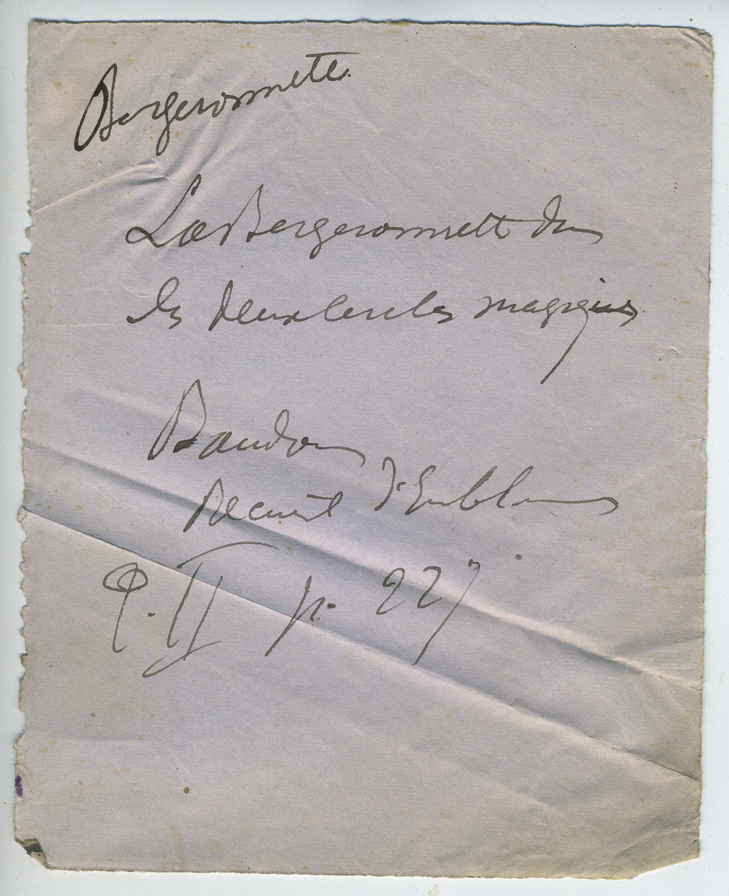 Bergeronnette.
La Bergeronnette dans
les deux cercles magiques
Baudoin
Recueil d'Emblèmes
P. II p. 227